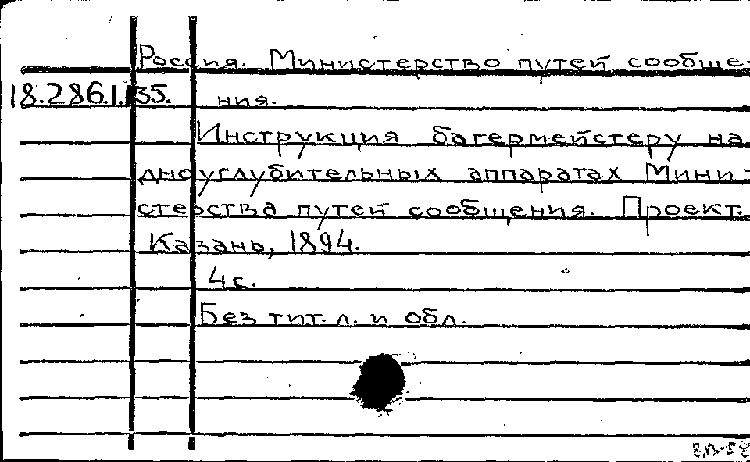 Россия. Министерство путей сообще-
18.286.1.135. ния.
Инструкция багермейстеру на
дноуглубительных аппаратах Мини-
стерства путей сообщения. Проект.
Казань, 1894.
4 с.
Без тит. л. и обл.